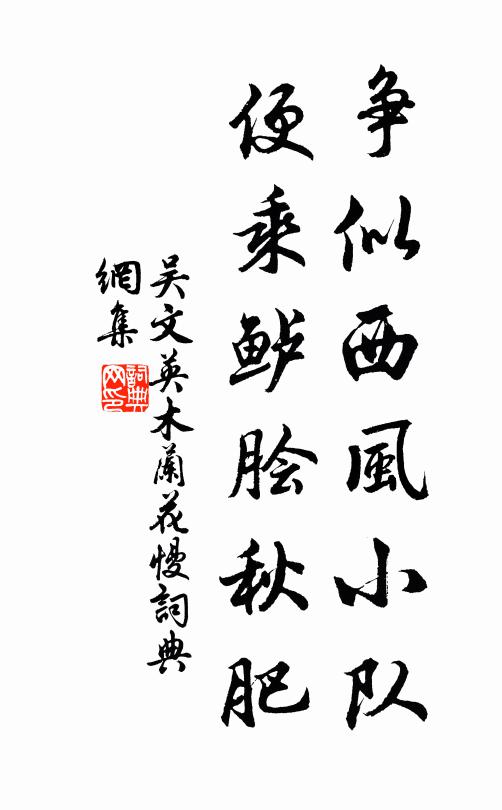 争似西風小队
便乘鲈脍秋肥
吴文英木蘭花慢詞典
網集
詞典网印